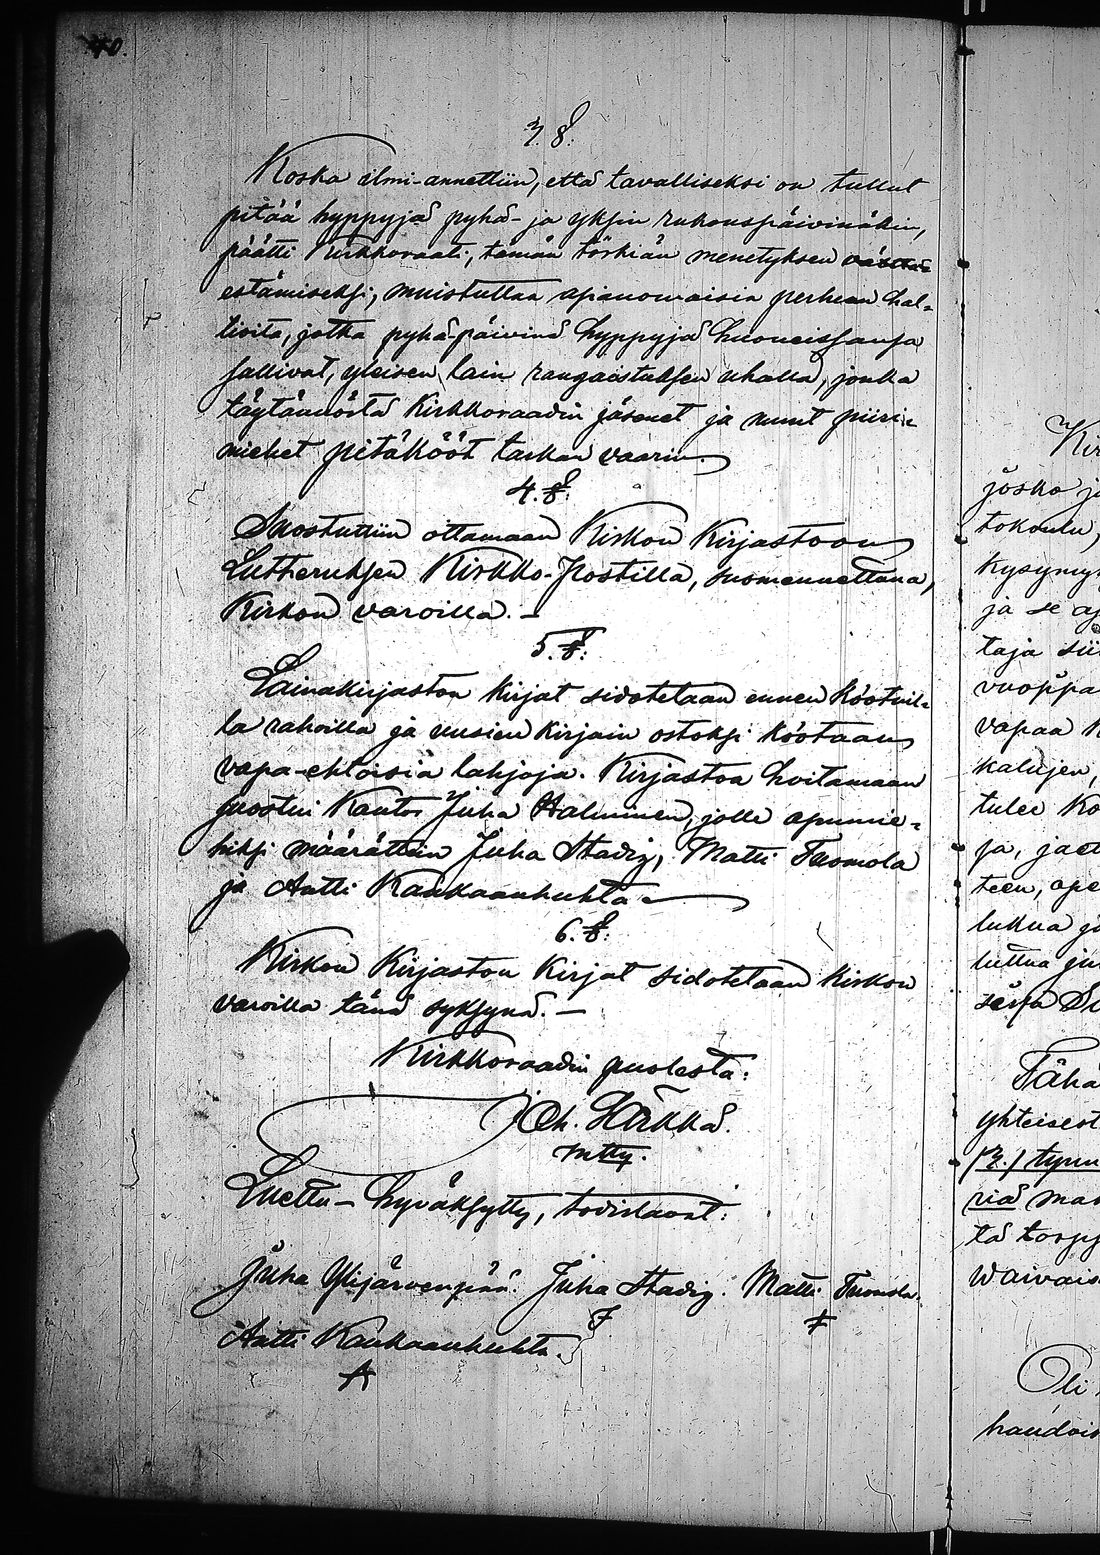 40.
3. §.
Koska ilmi-annettiin, että tavalliseksi on tullut
pitää hyppyjä pyhä- ja yksin rukouspäivinäkin,
päätti Kirkkoraati, tämän törkiän menetyksen
estämiseksi, muistuttaa asianomaisia perheen hal-
tioita, jotka pyhä-päivinä hyppyjä huoneissansa
sallivat, yleisen lain rangaistuksen uhalla, jonka
täytännöstä Kirkkoraadin jäsenet ja muut piiri-
miehet pitäkööt tarkan vaarin.
4. §:
Suostuttiin ottamaan Kirkon Kirjastoon
Lutheruksen Kirkko-Postilla, suomennettuna,
Kirkon varoilla. -
5. §:
Lainakirjaston kirjat sidotetaan ennen kootuil-
la rahoilla ja uusien kirjain ostoksi kootaan
vapa-ehtoisia lahjoja. Kirjastoa hoitamaan
suostui Kantor Juha Halminen, jolle apumie-
hiksi määrättiin Juha Stadig, Matti Tuomola
ja Antti Kaukaanhuhta
6. §:
Kirkon Kirjaston Kirjat sidotetaan kirkon
varoilla tänä syksynä. -
Kirkkoraadin puolesta:
Ch. Härkkä.
Luettu - hyväksytty, todistavat:
Juha Ylijärvenpää. Juha Stadig. Matti Tuomola.
Antti Kaukaanhuhta.
A
Kir
joska ja
tokoulu,
kysymy
ja se
taja sii
vuoppa
vapaa
kalujen,
tulee ko
ja, jaet
teen, ope
lukua ja
luttua
Tähä
yhteisest
ria man
tä torpp
waivais
Oli
haudois